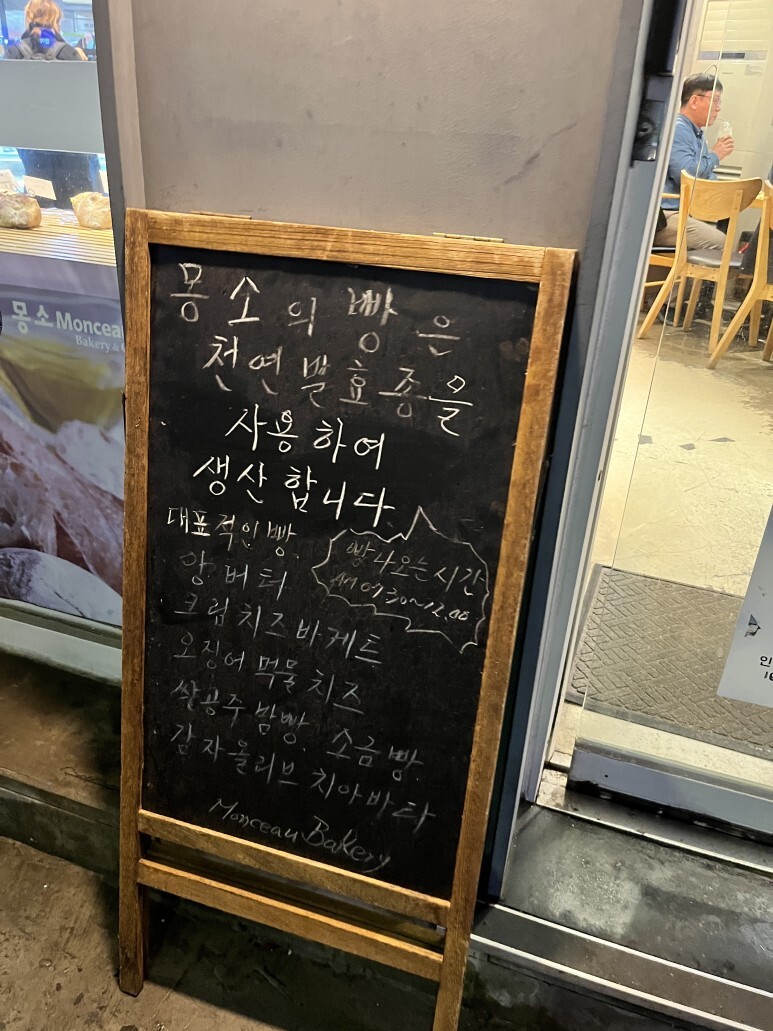 몽소의 빵은
천연발효종을
사용하여
생산합니다.
대표적인빵.
앙버터
크림치즈바게트
오징어먹물치즈
쌀공주밤빵. 소금빵.
감자올리브치아바타
빵나오는시간
AM 09:30~12:00
Monceau Bakery
몽소 Monceau
Bakery &
인